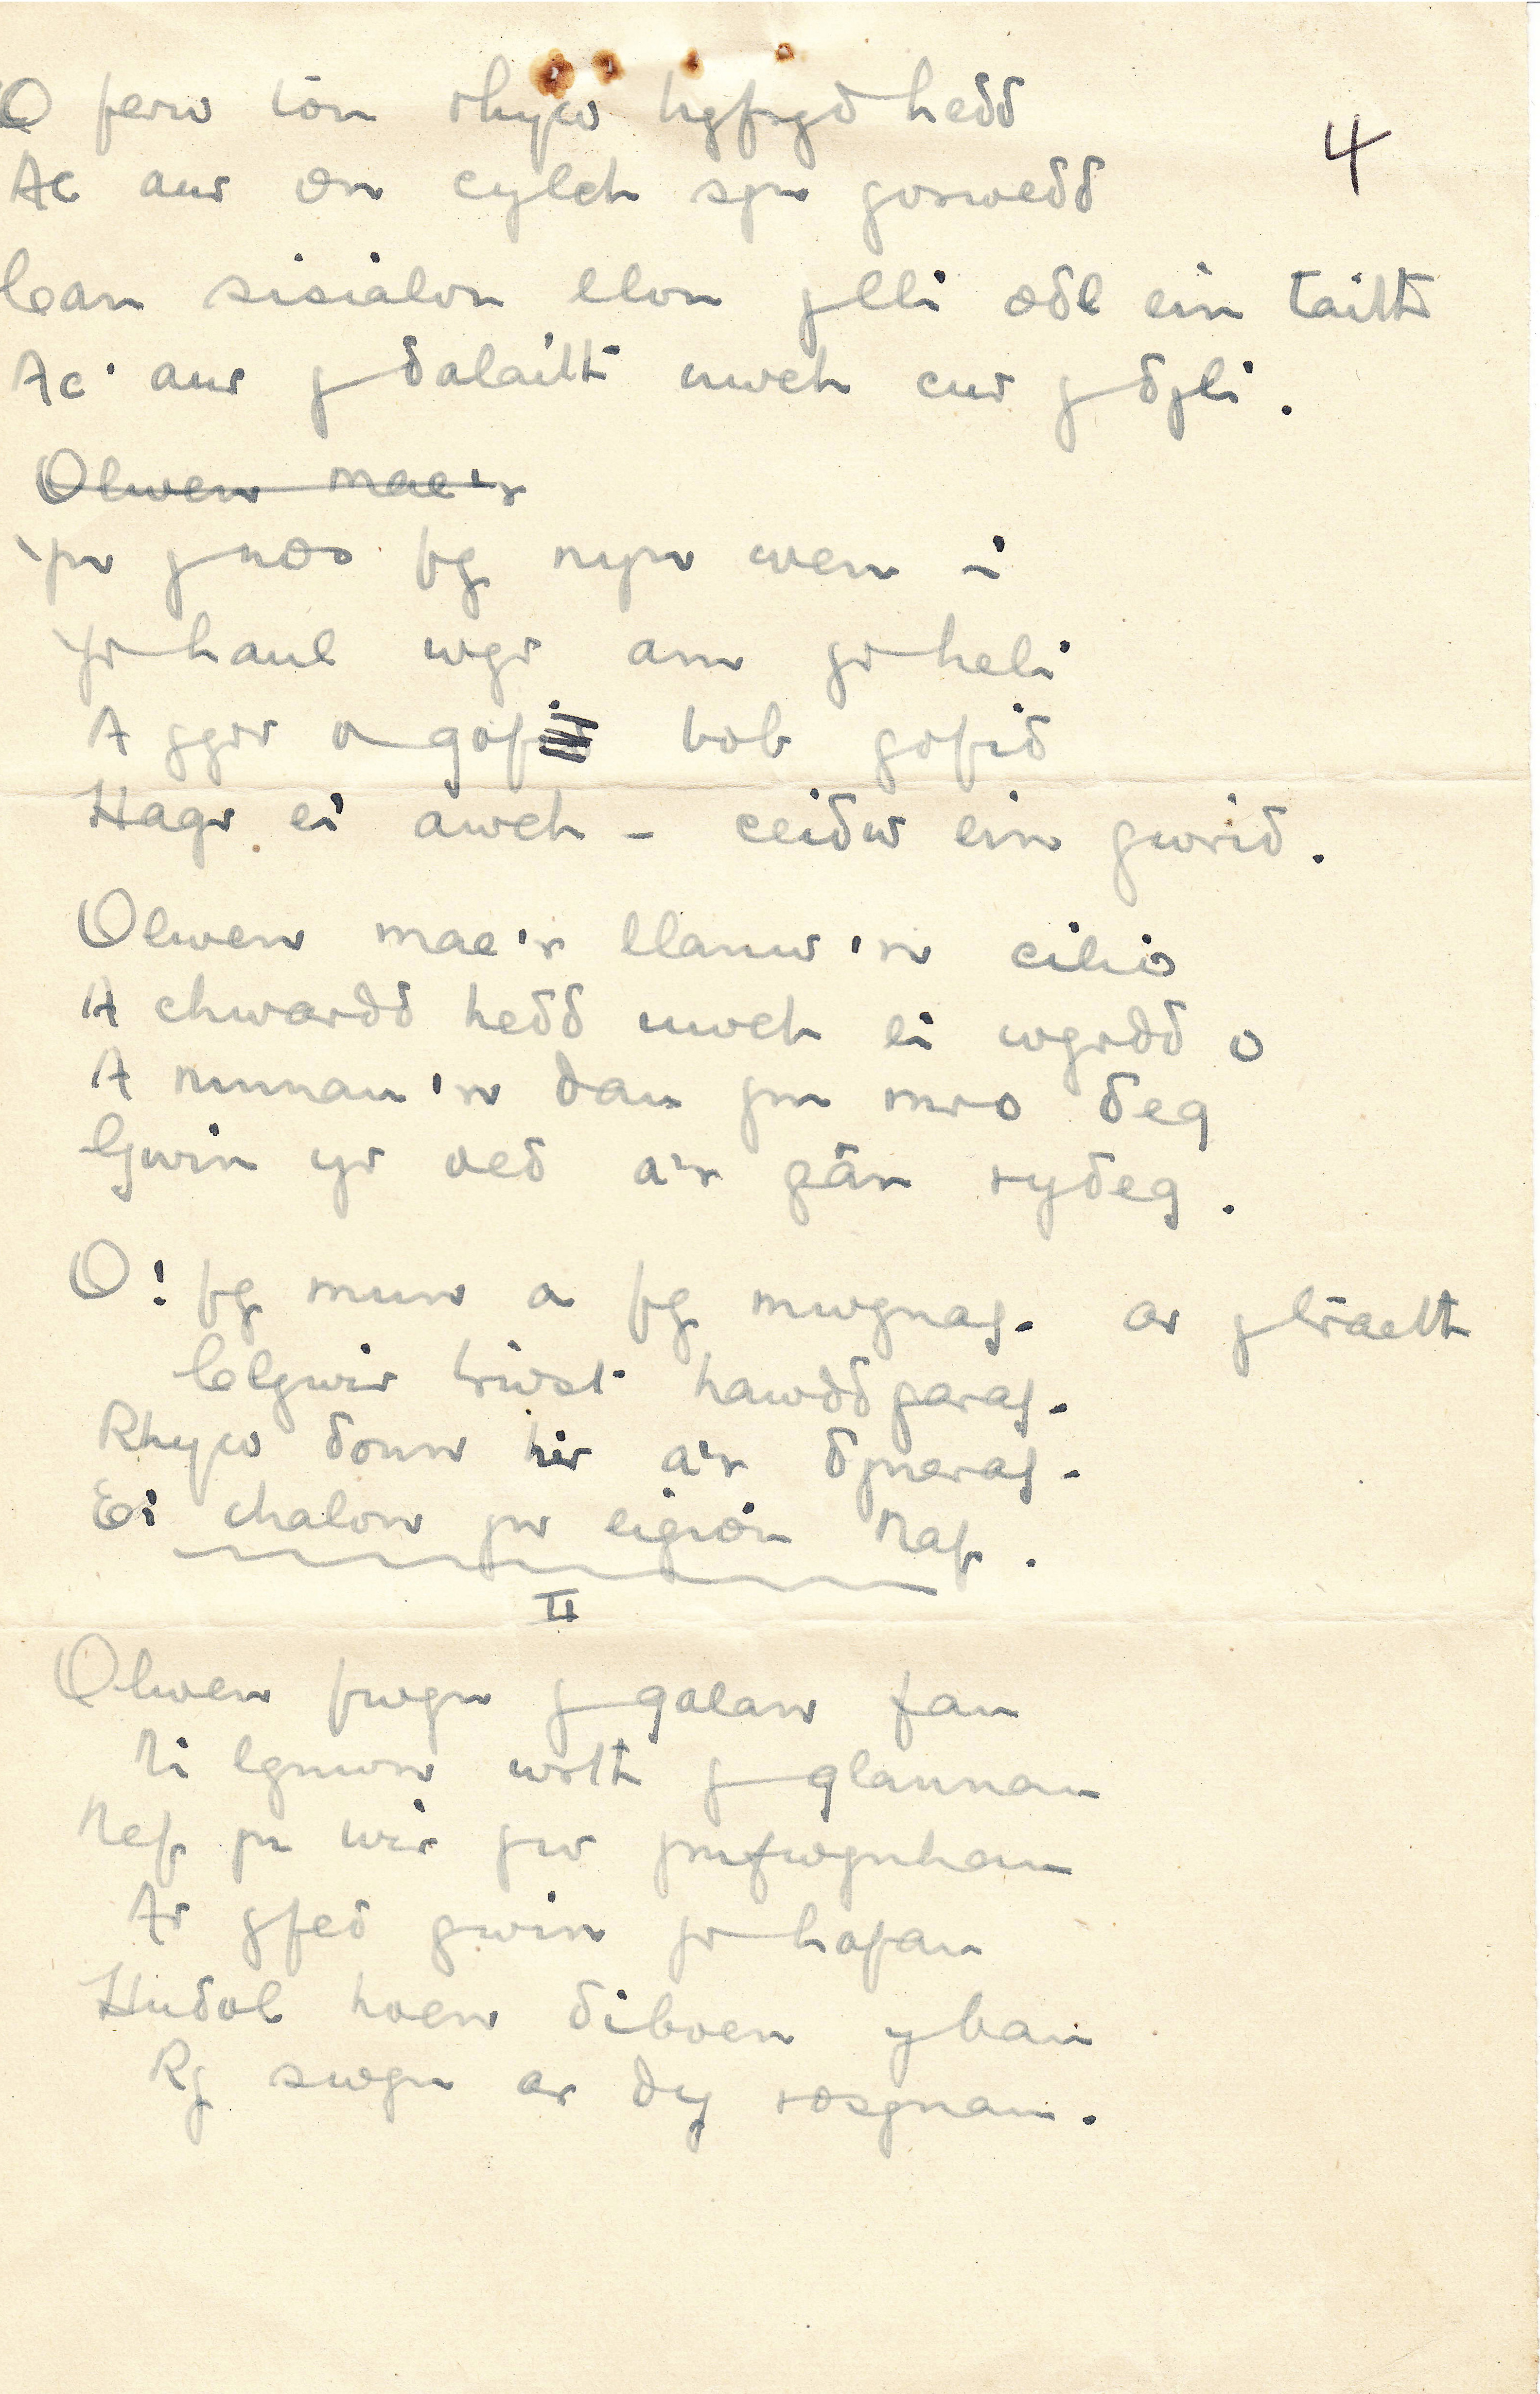 O ferw tôn rhyw hyfryd hedd
4
Ac aur on cylch sy'n gorwedd
Can sisialon llon y lli odl ein taith
Ac aur y dalaith uwch cur y dyli.
Olwen mae'r
Yn y nos fy nyn wen i
Yr haul wyr am yr heli
A gyr o gof bob gofid
Hagr ei awch - ceidw ein gwrid.
Olwen mae'r llanw'n cilio
A chwardd hedd uwch ei wyrdd o
A ninnau'n dau yn mro deg
Gwin yr oed a'r gân redeg.
O! fy mun a fy mwynaf - ar y traeth
Clywir trwst hawddgaraf -
Rhyw donn hir a'r dyneraf -
Ei chalon yn eigion Naf.
II
Olwen fwyn y galan fau
Ti lynwn wrth y glannau
Nef yn wir yw ymfwynhau
Ar yfed gwin yr hafau
Hudol hoen diboen y bau
Ry swyn ar dy rosynau.